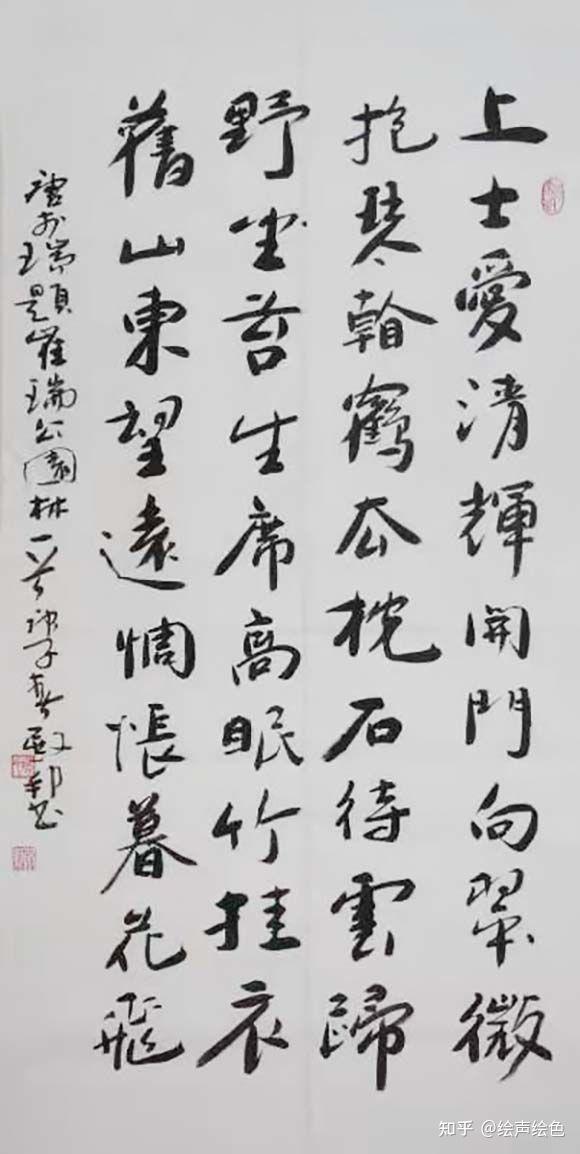 上士愛清輝開門向翠微
抱琴看鶴去枕石待雲歸
野坐苔生席高眠竹挂衣
舊山東望遠惆悵暮花飛
瑞題崔瑞公園林一首子春書
知乎 @绘声绘色